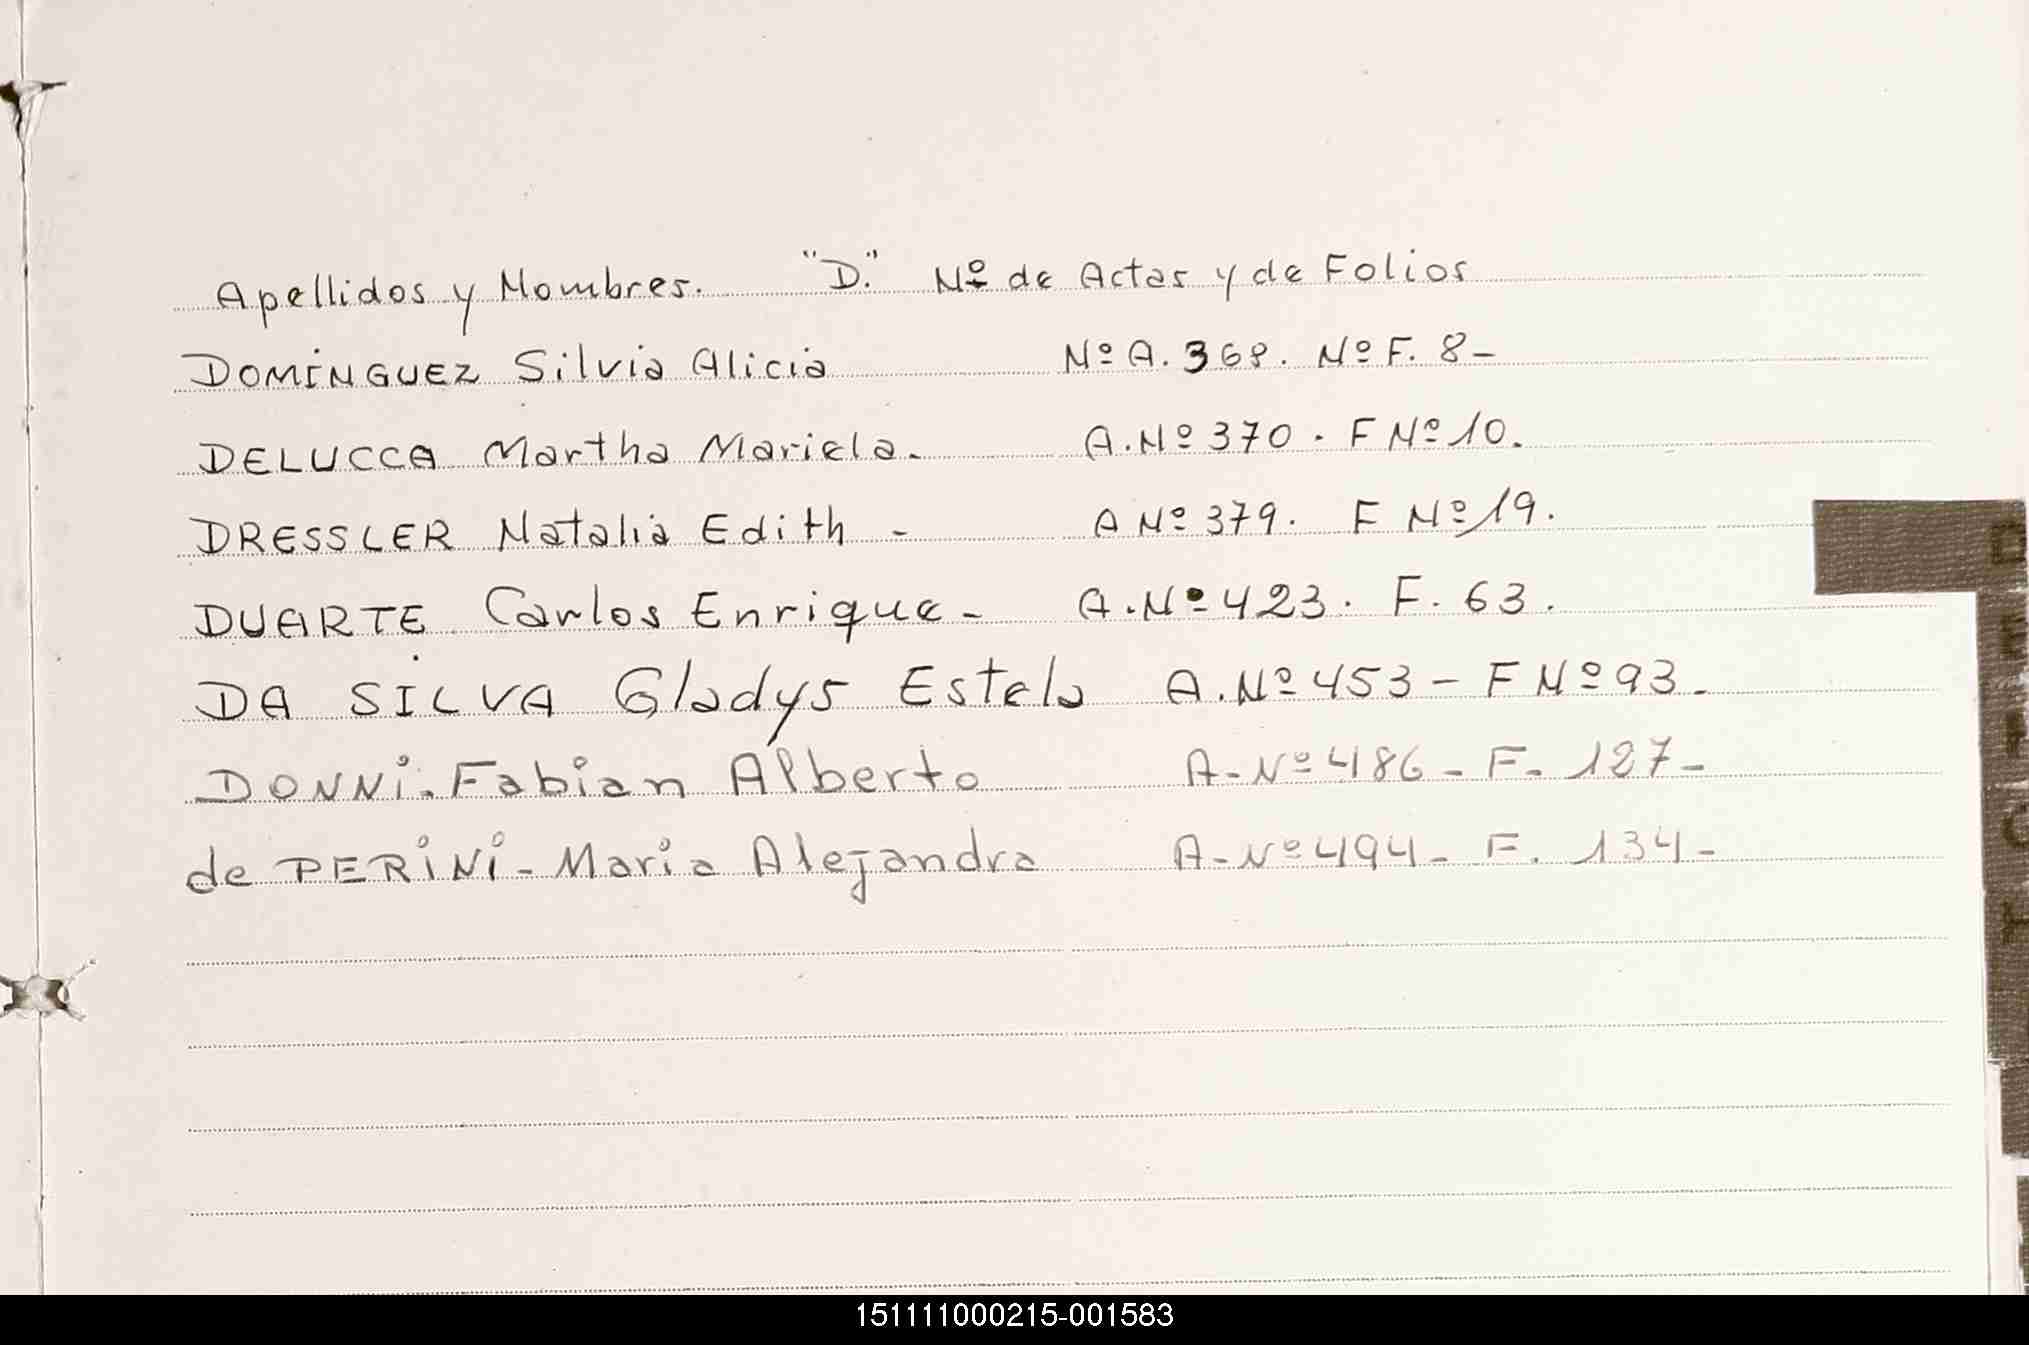 Apellidos y Nombres. "D." Nº de Actas y de Folios
DOMINGUEZ Silvia Alicia Nº A. 368. Nº F. 8-
DELUCCA Martha Mariela. A. Nº 370. F Nº 10.
DRESSLER Natalia Edith - A Nº 379. F Nº 19.
DUARTE Carlos Enrique - A. Nº 423. F. 63.
DA SILVA Gladys Estela A. Nº 453 - F Nº 93.
DONNi. Fabian Alberto A- Nº 486 - F. 127-
de PERiNi - Maria Alejandra A- Nº 494- F. 134-
151111000215-001583